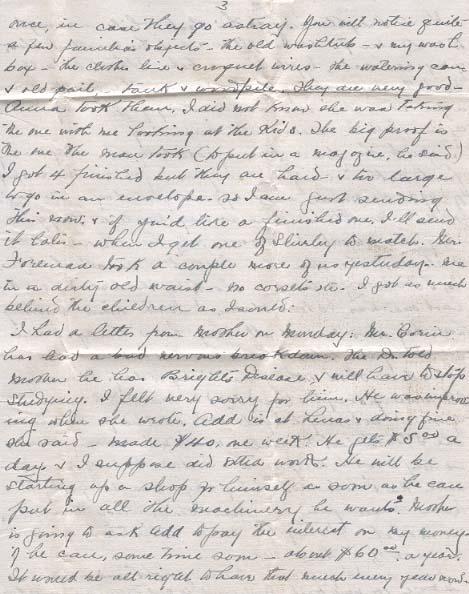 3
once, in case they go astray. You will notice quite
a few familiar objects - the old washtub - & my wash
box - the clothes line & croquet wires - the watering can
& old pail, - tank & woodpile. They are very good -
Anna took them. I did not know she was taking
the one with me looking at the kids. The big proof is
the one the man took (to put in a magazine, he said)
I got 4 finished but they are hard & too large
to go in an envelope. so I am just sending
this now. & if you'd like a finished one, I'll send
it later - when I get one of Shirley to match.
Foreman took a couple more of us yesterday. me
in a dirty old waist - no corsets etc. I got as much
behind the children as I could.
I had a letter from Mother on Monday. Mr.
has had a bad nervous breakdown. The Dr. told
Mother he has Brights Disease, & will have to stop
studying. I felt very sorry for him. He was improv
ing when she wrote. Add is at Lena's & doing fine
she said - made $40. one week. He gets $5.00 a
day & I suppose did extra work. He will be
starting up a shop for himself as soon as he can
put in all the machinery he wants. Mother
is going to ask Add to pay the interest on my money
if he can, some time soon - about $60.00 a year.
It would be all right to have that much every year now.